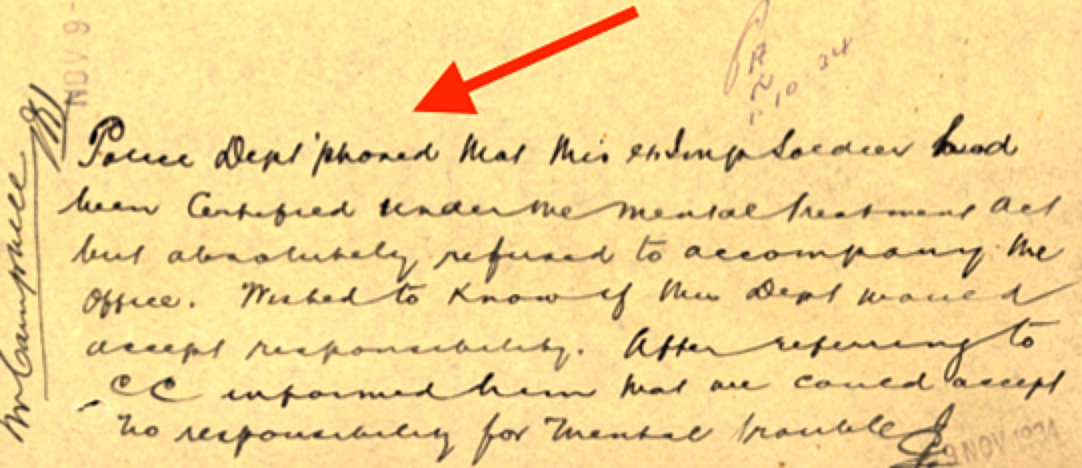 NOV 9-
10-24
Mr Campbell
Police Dept 'phoned that this ex Imp Soldier had
been Certified under the mental treatment Act
but absolutely refused to accompany the
Office. Wished to know if this Dept would
accept responsibility. After referring to
CC informed him that we could accept
no responsibility for mental trouble
9 NOV 1934